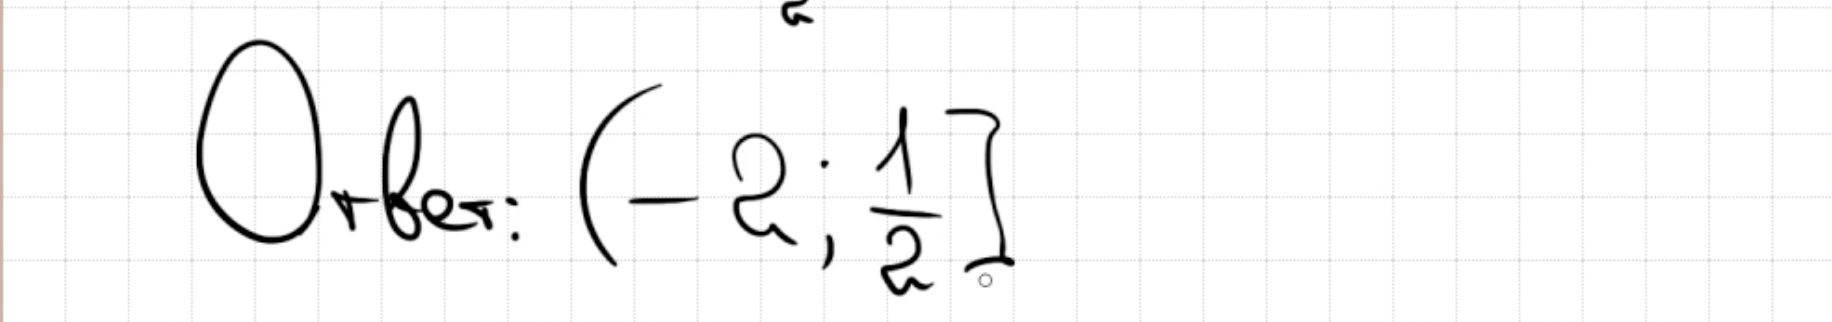 Ответ: (-2; 1/2]